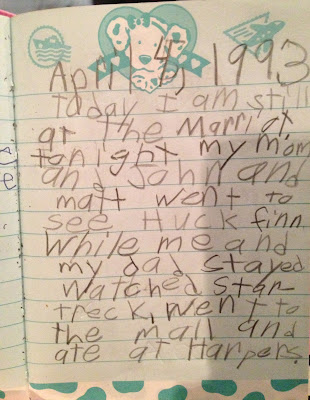 April 4, 1993
today I am still
at the Marriat,
tonight my mom
and John and
matt went to
see Huck finn
while me and
my dad stayed
watched star
treck, went to
the mall and
ate at Harpers.